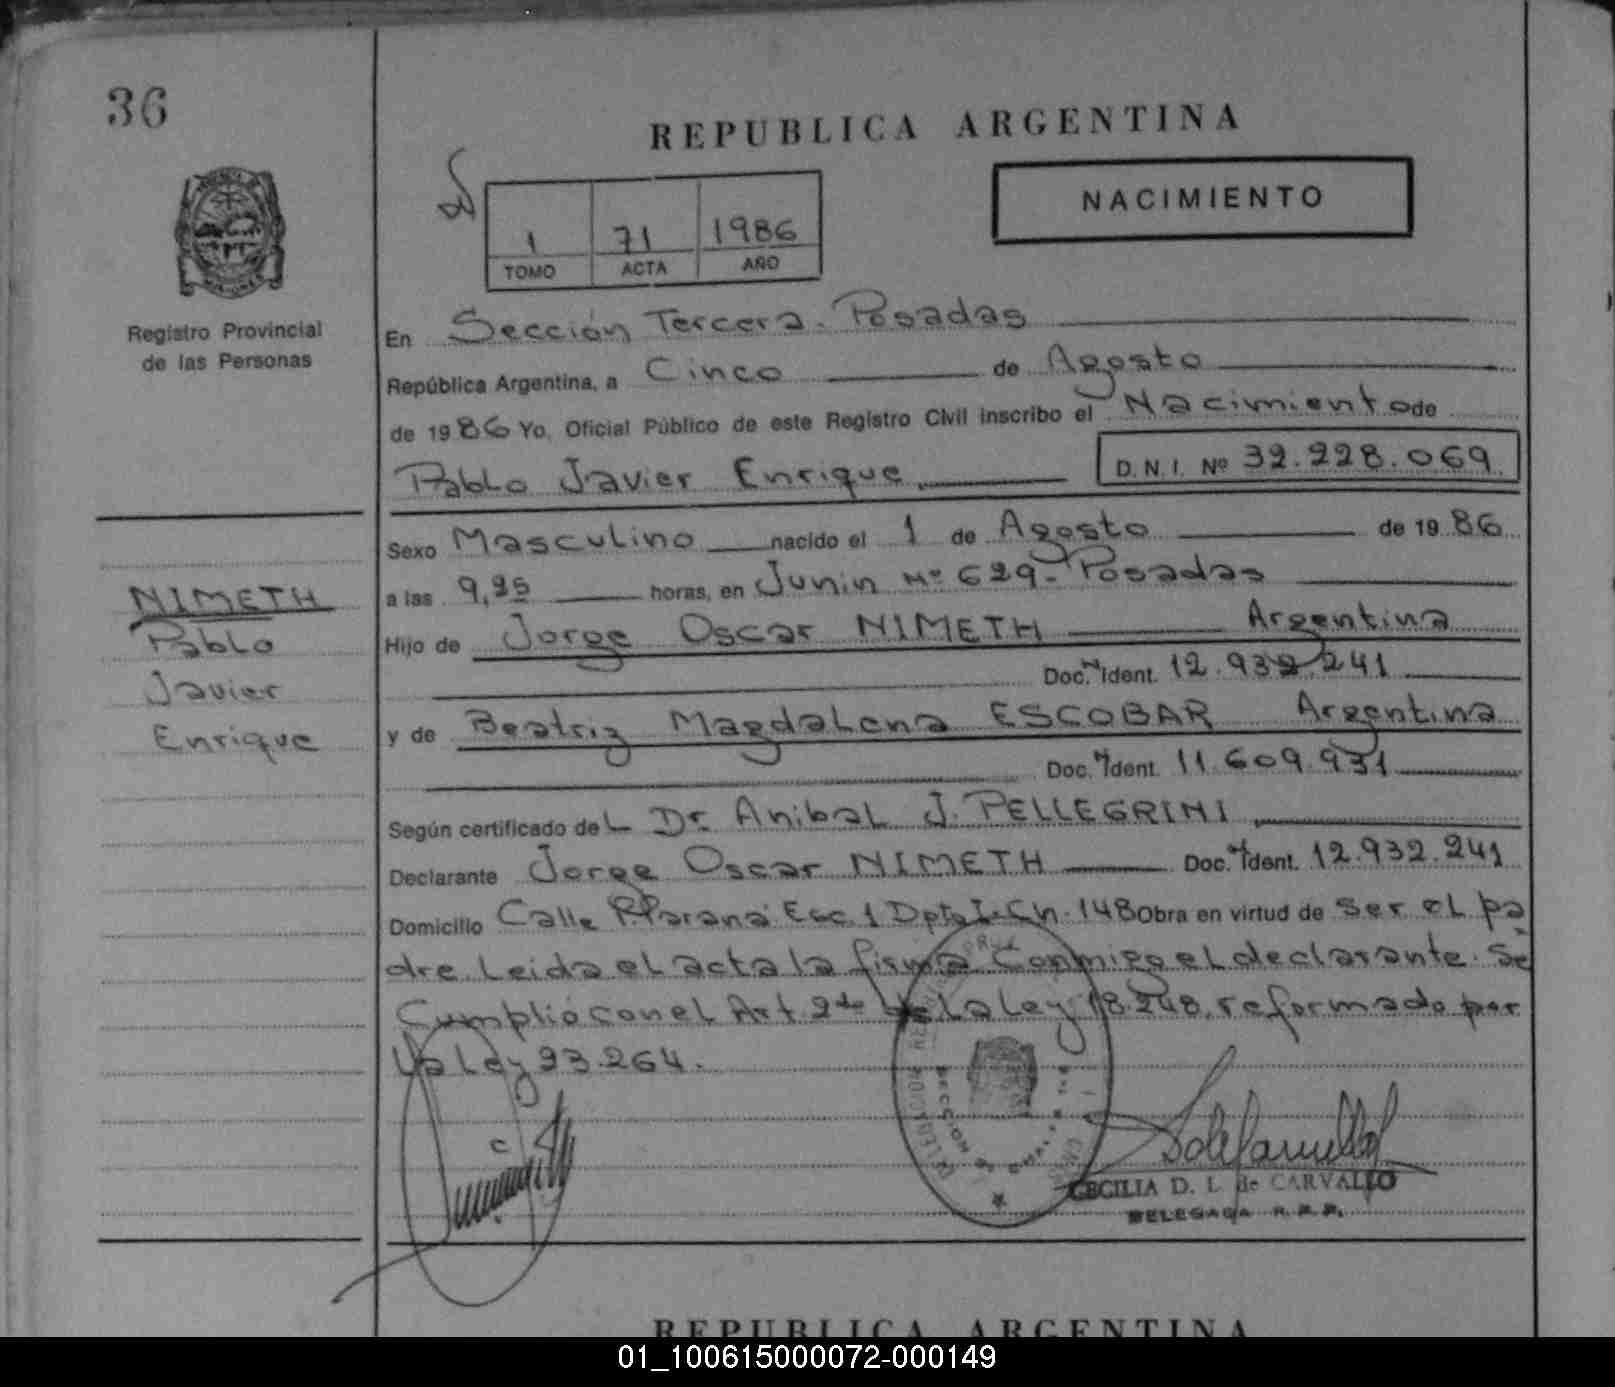 36
REPUBLICA ARGENTINA
NACIMIENTO
1 71 1986
TOMO ACTA AÑO
Registro Provincial
de las Personas
En Sección Tercera. Posadas
República Argentina, a Cinco de Agosto
de 1986 Yo, Oficial Público de este Registro Civil inscribo el Nacimiento de
Pablo Javier Enrique D.N.I. Nº 32.228.069
Sexo Masculino nacido el 1 de Agosto de 1986
a las 9,25 horas, en Junin Nº 629- Posadas
NIMETH
Pablo
Javier
Enrique
Hijo de Jorge Oscar NIMETH Argentina
Doc. Ident. 12.932.241
y de Beatriz Magdalena ESCOBAR Argentina
Doc. Ident. 11.609.931
Según certificado del Dr. Anibal J. PELLEGRINI
Declarante Jorge Oscar NIMETH Doc. Ident. 12.932.241
Domicilio Calle Parana Esc. 1 Dpto Ch. 148 Obra en virtud de ser el pa
dre. Leida el acta la firma Conmigo el declarante. Se
Cumplió con el Art. 2do de la Ley 18.248, reformado por
la Ley 23.264.
CECILIA D. L. de CARVALLO
DELEGADA R.P.P.
REPUBLICA ARGENTINA
01_100615000072-000149